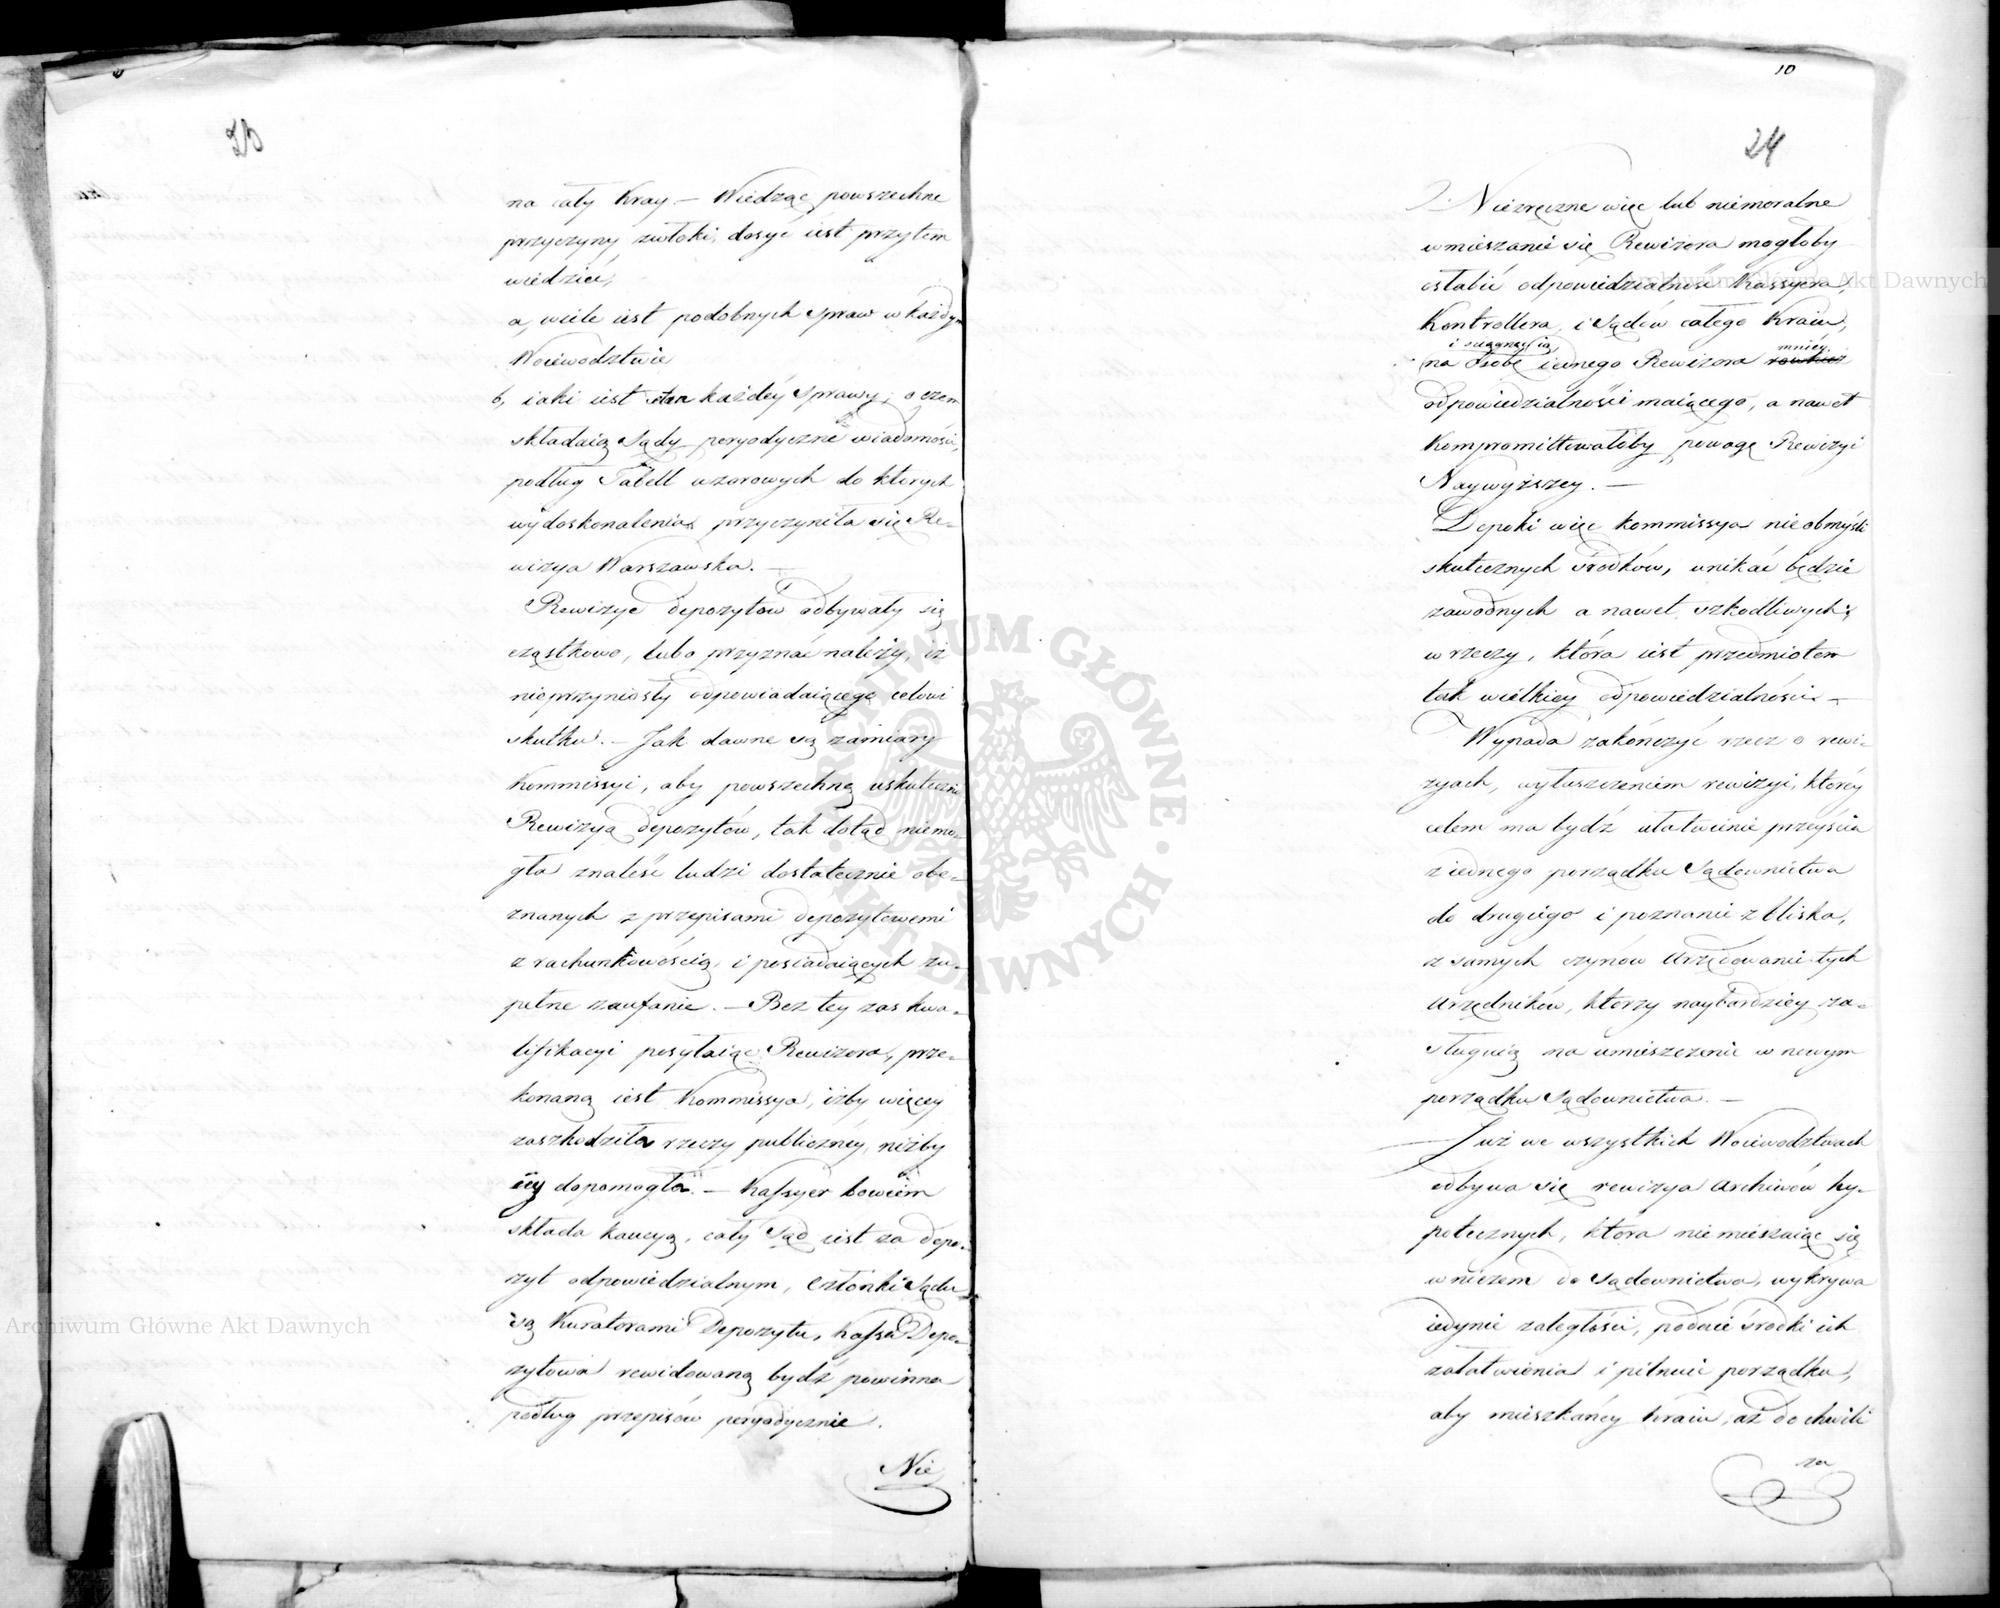 23
na cały Kray — Wiedząc powszechne
przyczyny zwłoki, dosyc iest przytem
wiedzieć,
a, wiele iest podobnych spraw w każdym
Woiewodztwie
b, iaki iest stan każdéy sprawy; o czem
składaią Sądy peryodyczne wiadomości,
podług Tabell wzorowych do których
wydoskonalenia przyczyniła się Re-
wizya Warszawska. —
Rewizye depozytow odbywały się
cząstkowo, lubo przyznać należy, iż
nieprzyniosły odpowiadaiącego celowi
skutku. — Jak dawne są zamiary
Kommissyi, aby powszechną uskutecznić
Rewizyą depozytów, tak dotąd niemo-
gła znaleść ludzi dostatecznie obe-
znanych z przepisami depozytowemi
z rachunkowością, i posiadaiących zu-
pełne zaufanie. — Bez tey zas kwa-
lifikacyi posyłaiąc Rewizora, prze-
konaną iest Kommissya, iżby więcey
zaszkodziła rzeczy publicznéy, niżby
iey dopomogła. — Kassyer bowiem
składa kaucyą, cały Sąd iest za depo-
zyt odpowiedzialnym, Członki Sądu
są Kuratorami Depozytu, Kassa Depo-
zytowa rewidowaną bydź powinna
podług przepisów peryodycznie.
Nie
10
24
Niezręczne więc lub niemoralne
wmieszanie się Rewizora mogłoby
osłabić odpowiedzialność Kassyera,
Kontrollera, i Sądów całego Kraiu,
na Osobę iednego Rewizora mniéy
odpowiedzialności maiącego, a nawet
Kompromittowałoby powagę Rewizyi
Naywyższey. —
Dopoki więc Kommissya nieobmyśli
skutecznych środków, unikać będzie
zawodnych a nawet szkodliwych
w rzeczy, która iest przedmiotem
tak wielkiey odpowiedzialności. —
Wypada zakończyć rzecz o rewi-
zyach, wyłuszczeniem rewizyi, któréy
celem ma bydź ułatwienie przeyścia
z iednego porządku Sądownictwa
do drugiego i poznanie z bliska,
z samych czynów Urzędowanie tych
Urzędników, którzy naybardziey za-
sługuią na umieszczenie w nowym
porządku Sądownictwa. —
Już we wszystkich Woiewodztwach
odbywa się rewizya Archiwów hy-
potecznych, która nie mieszaiąc się
w niczem do Sądownictwa, wykrywa
iedynie zaległości, podaie środki ich
załatwienia i pilnuie porządku,
aby mieszkańcy Kraiu, aż do chwili
za
ARCHIWUM GŁÓWNE AKT DAWNYCH
Archiwum Główne Akt Dawnych
Archiwum Główne Akt Dawnych